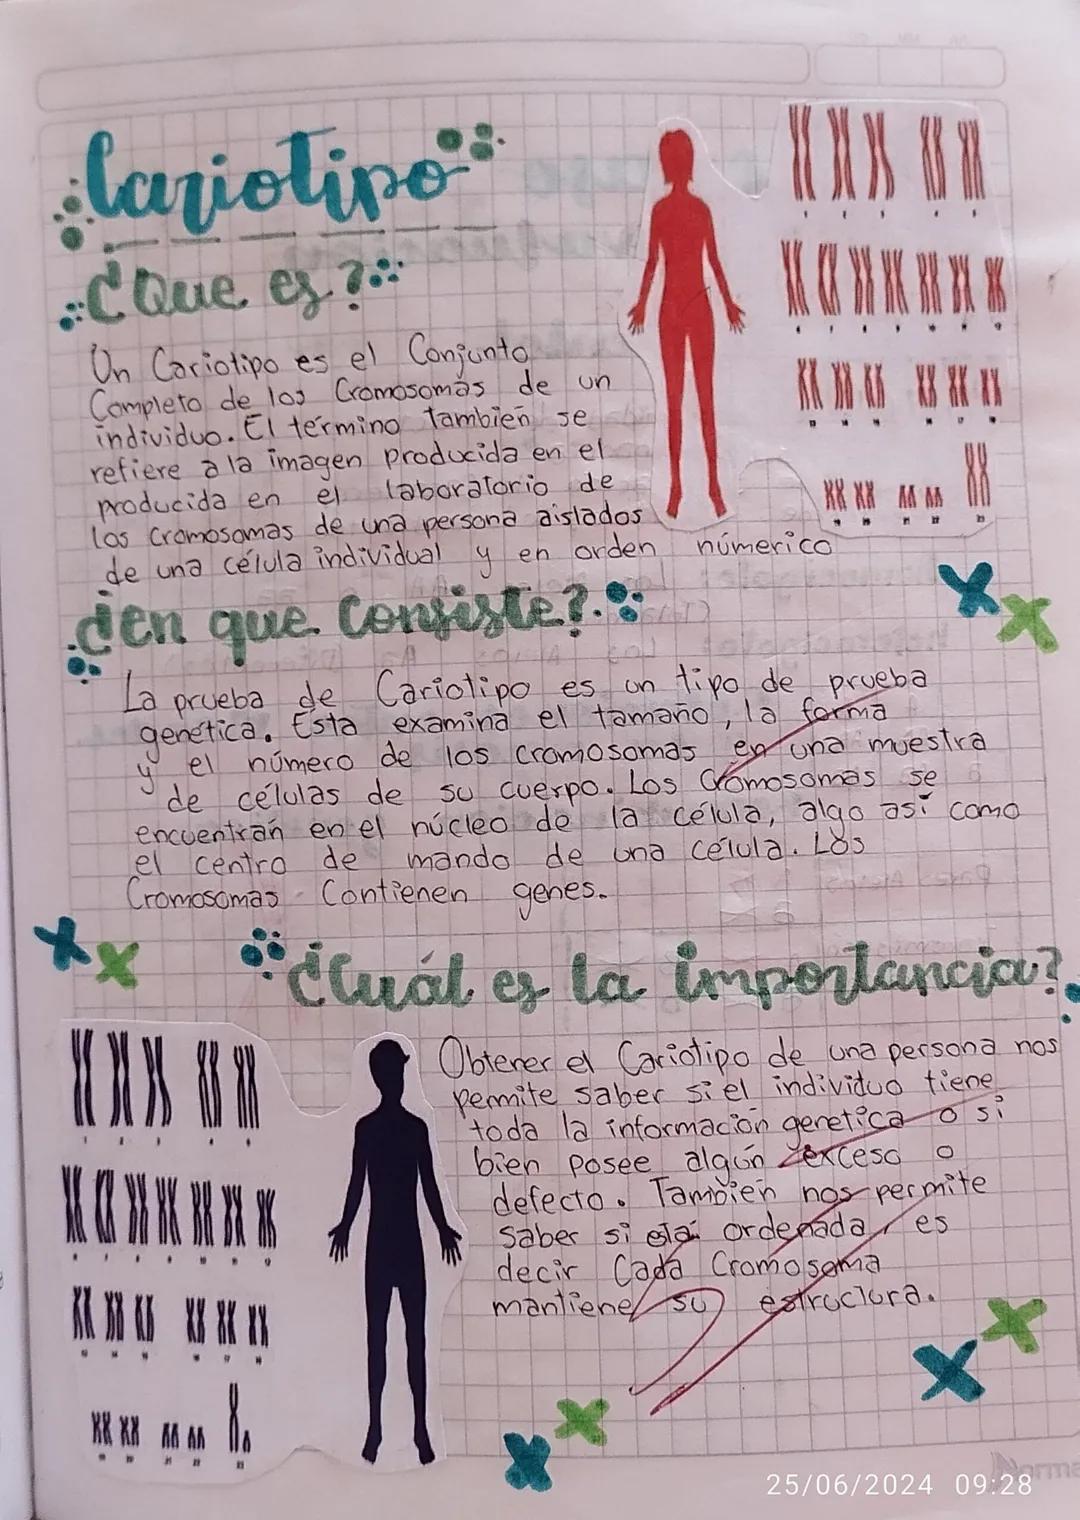 Cariotipo
¿Que es?
Un Cariotipo es el Conjunto
Completo de los Cromosomas de un
individuo. El término también se
refiere a la imagen producida en el
producida en el laboratorio de
los cromosomas de una persona aislados
de una célula individual y en orden númerico
¿En que consiste?.
La prueba de Cariotipo es un tipo de prueba
genética. Esta examina el tamaño, la forma
y el número de los cromosomas en una muestra
de células de su cuerpo. Los Cromosomas se
encuentran en el núcleo de la célula, algo así como
el centro de mando de una célula. Los
Cromosomas Contienen genes.
¿Cuál es la importancia?
Obtener el Cariotipo de una persona nos
permite saber si el individuo tiene
toda la información genetica o si
bien posee algún exceso o
defecto. También nos permite
saber si está ordenada, es
decir Cada Cromosoma
mantiene su estructura.
Norma
25/06/2024 09:28